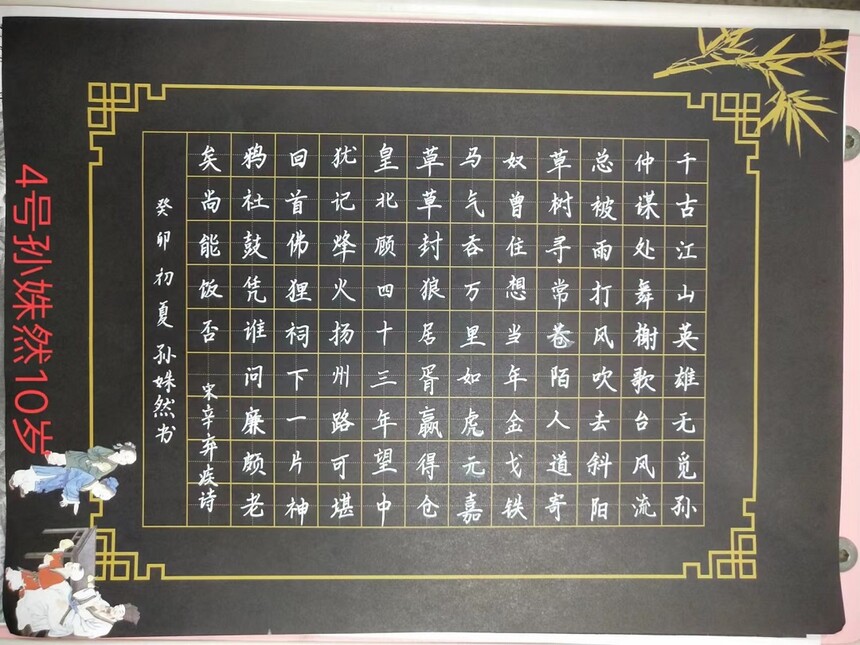 千古江山英雄无觅孙
仲谋处舞榭歌台风流
总被雨打风吹去斜阳
草树寻常巷陌人道寄
奴曾住想当年金戈铁
马气吞万里如虎元嘉
草草封狼居胥赢得仓
皇北顾四十三年望中
犹记烽火扬州路可堪
回首佛狸祠下一片神
鸦社鼓凭谁问廉颇老
矣尚能饭否
宋辛弃疾诗
癸卯初夏孙姝然书
4号孙姝然10岁